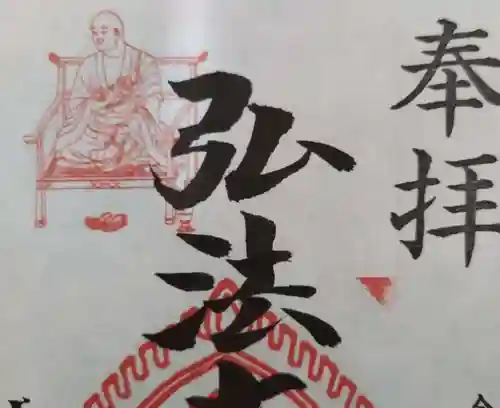 奉拝
弘法